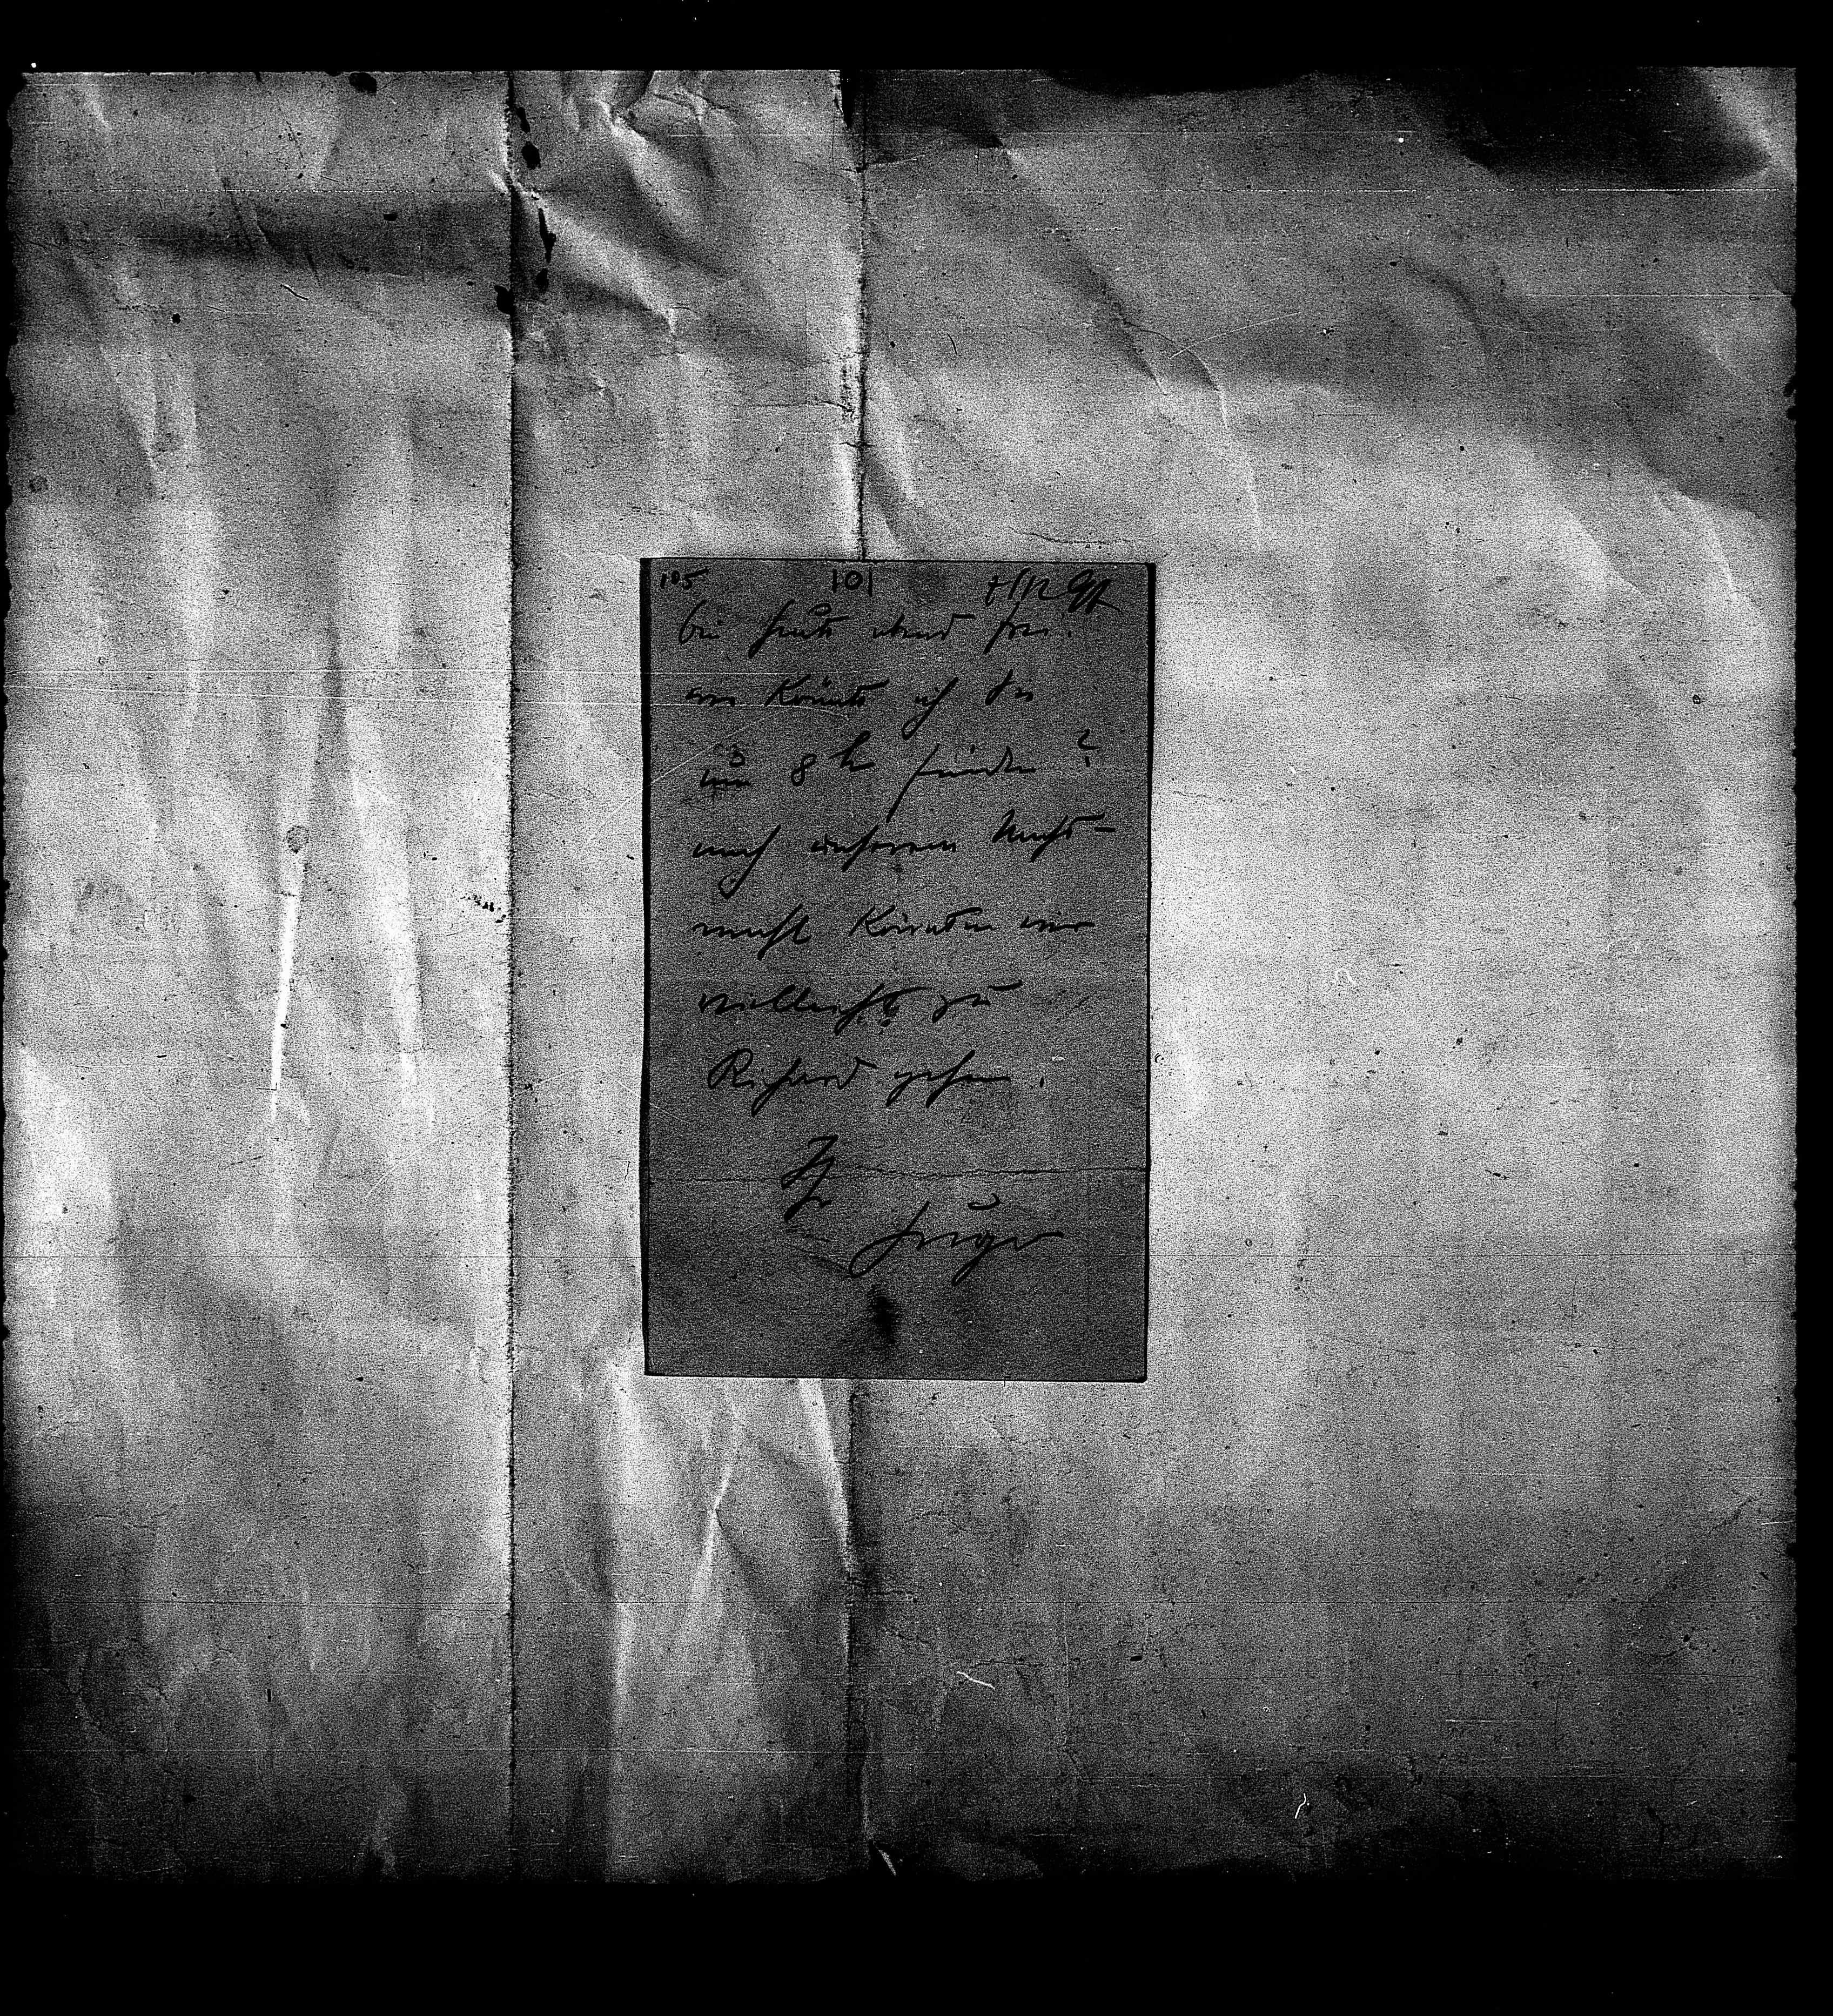 105 101
bin heute abend frei.
wo könnte ich Sie
um 8h finden?
nach unserem Nacht-
mahl könnten wir
vielleicht zu
Richard gehen.
Ihr
Hugo